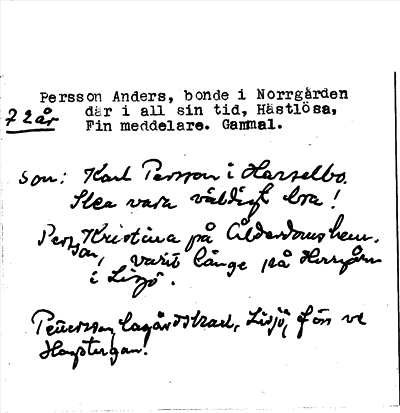 Persson Anders, bonde i Norrgården
72 år där i all sin tid, Hästlösa,
Fin meddelare. Gammal.
son: Karl Persson i Harselbo.
Ska vara väldigt bra!
Persson, Kristina på Ålderdomshem.
varit länge på
i Lisjö.
Pettersson, lagårdskarl, Lisjö, f ön